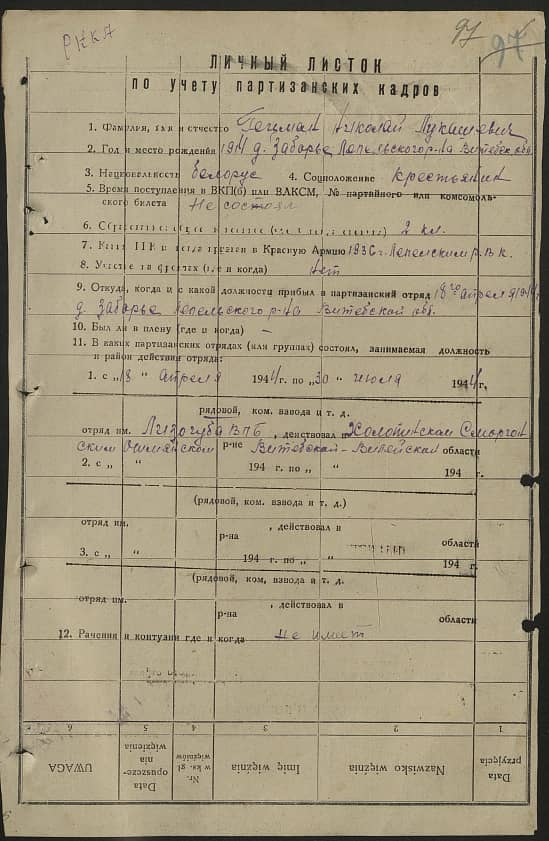 РККА
97
97
ЛИЧНЫЙ ЛИСТОК
по учету партизанских кадров
1. Фамилия, имя и отчество Гецман Николай Лукашевич
2. Год и место рождения 1914 д. Заборье Лепельского р-на Витебск. обл.
3. Национальность белорус 4. Соцположение Крестьянин
5. Время поступления в ВКП(б) или ВЛКСМ, № партийного или комсомоль-
ского билета Не состоял
6. 2 кл.
7. Каким РВК и когда призван в Красную Армию 1936 г. Лепельским Р.В.К.
8. Участие на фронтах (где и когда) нет
9. Откуда, когда и с какой должности прибыл в партизанский отряд 18го апреля 1944 г
д. Заборье Лепельского р-на Витебской обл.
10. Был ли в плену (где и когда) –
11. В каких партизанских отрядах (или группах) состоял, занимаемая должность
и район действия отряда:
1. с „18 " апреля 1944 г. по „30 " июля 1944 г,
рядовой, ком. взвода и т. д.
отряд им. Лизогуба ВПБ , действовал в Холопинском Сморгон
ским р-не Витебской-Вилейской области
2. с „ " 194 г. по „ " 194 г.
(рядовой, ком. взвода и т. д.)
отряд им. , действовал в
р-на области
3. с „ " 194 г. по „ " 194 г.
(рядовой, ком, взвода и т. д.
отряд им. , действовал в
р-на области
12. Ранения и контузии где и когда Не имеет
6 5 4 3 2 1
UWAGA
Data opuszcze-
nia
więzienia
Nr.
w ks. gł.
więźniów
Imię więźnia
Nazwisko więźnia
Data
przyjęcia